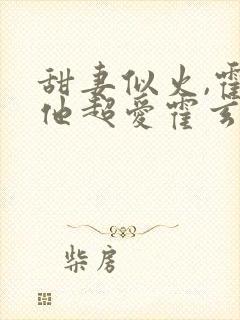 甜妻似火,霍
他超爱霍玄
柴房